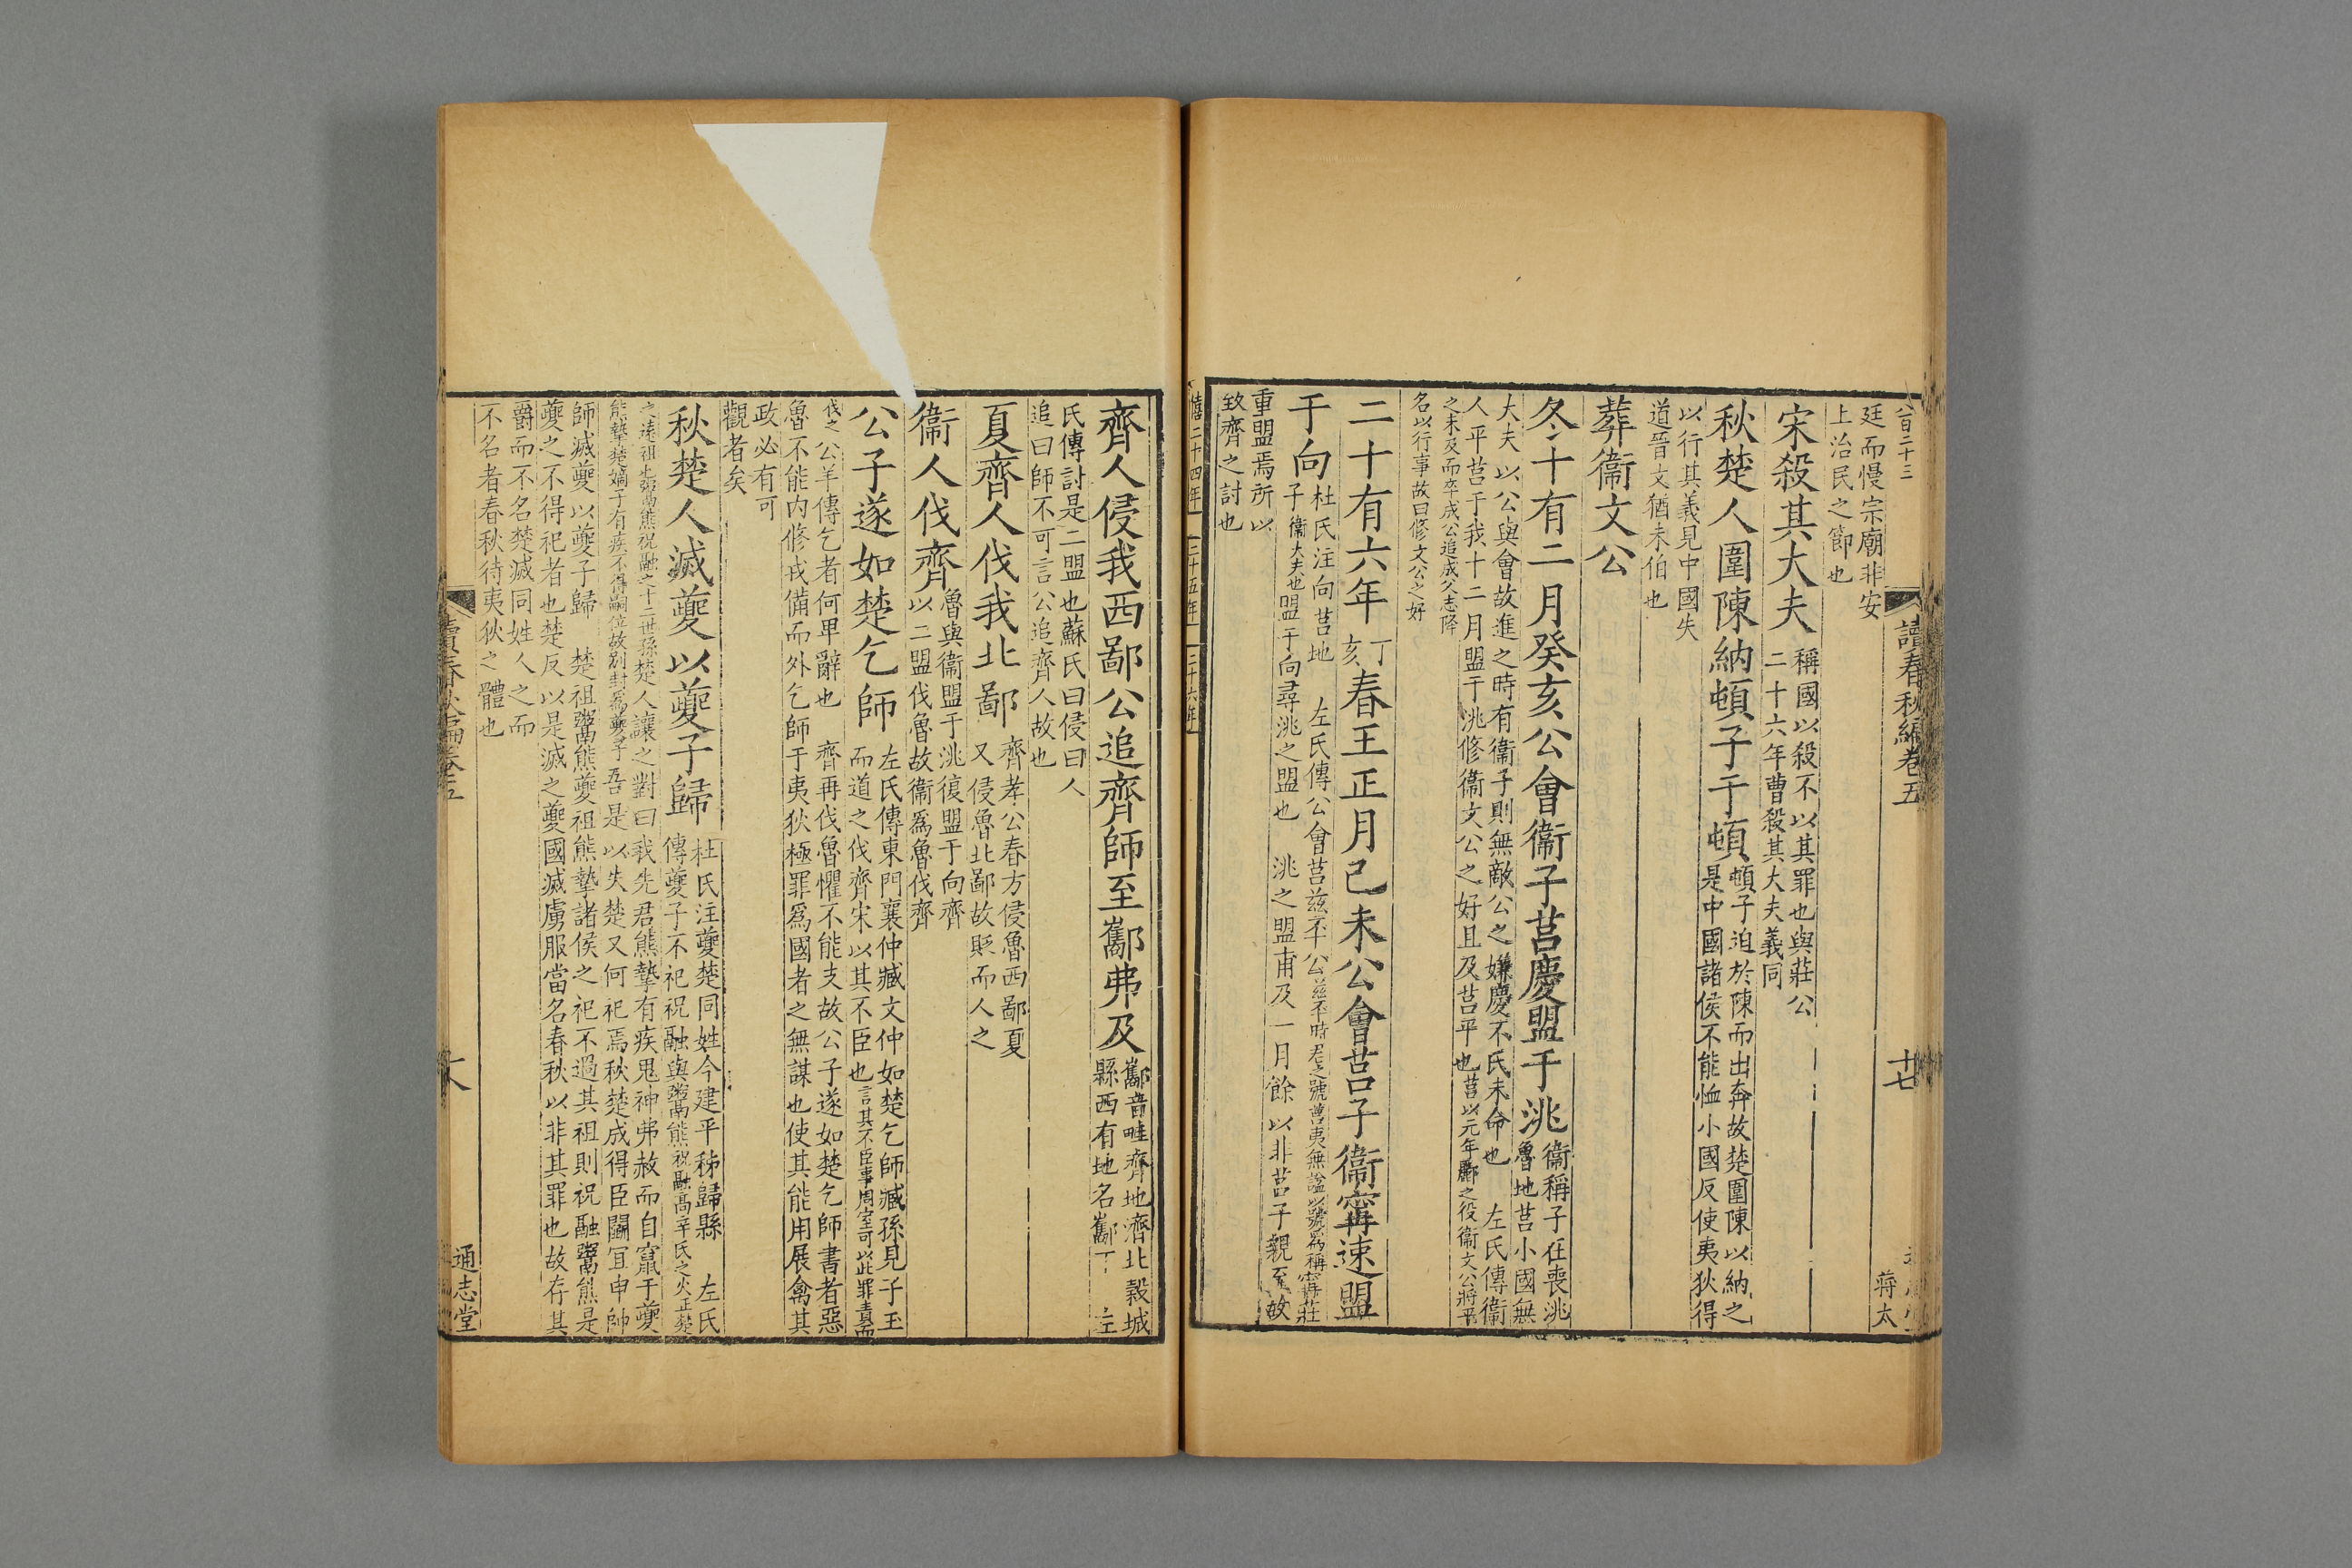 八百二十三
讀春秋編卷五
十七
蔣太
廷而慢宗廟非安
上治民之節也
宋殺其大夫
稱國以殺不以其罪也與莊公
二十六年曹殺其大夫義同
秋楚人圍陳納頓子于頓
頓子迫於陳而出奔故楚圍陳以納之
是中國諸侯不能恤小國反使夷狄得
以行其義見中國失
道晉文猶未伯也
葬衞文公
冬十有二月癸亥公會衞子莒慶盟于洮
衞稱子在喪洮
魯地莒小國無
大夫以公與會故進之時有衞子則無敵公之嫌慶不氏未命也 左氏傳衞
人平莒于我十二月盟于洮修衞文公之好且及莒平也莒以元年酈之役衞文公將平
之未及而卒成公追成父志降
名以行事故曰修文公之好
二十有六年
丁
亥
春王正月己未公會莒子衞甯速盟
于向
杜氏注向莒地 左氏傳公會莒茲㔻公茲㔻時君之號莒夷無諡以號爲稱甯莊
子衞大夫也盟于向尋洮之盟也 洮之盟甫及一月餘以非莒子親至故
重盟焉所以
致齊之討也
僖二十四年 二十五年 二十六年
齊人侵我西鄙公追齊師至巂弗及
巂音畦齊地濟北穀城
縣西有地名巂下 左
氏傳討是二盟也蘇氏曰侵曰人
追曰師不可言公追齊人故也
夏齊人伐我北鄙
齊孝公春方侵魯西鄙夏
又侵魯北鄙故貶而人之
衞人伐齊
魯與衞盟于洮復盟于向齊
以二盟伐魯故衞爲魯伐齊
公子遂如楚乞師
左氏傳東門襄仲臧文仲如楚乞師臧孫見子玉
而道之伐齊宋以其不臣也言其不臣事周室可以此罪責而
伐之公羊傳乞者何卑辭也 齊再伐魯懼不能支故公子遂如楚乞師書者惡
魯不能內修戎備而外乞師于夷狄極罪爲國者之無謀也使其能用展禽其
政必有可
觀者矣
秋楚人滅夔以夔子歸
杜氏注夔楚同姓今建平秭歸縣 左氏
傳夔子不祀祝融與鬻熊祝融高辛氏之火正楚
之遠祖也鬻熊祝融之十二世孫楚人讓之對曰我先君熊摯有疾鬼神弗赦而自竄于夔
熊摯楚嫡子有疾不得嗣位故別封爲夔子吾是以失楚又何祀焉秋楚成得臣鬭宜申帥
師滅夔以夔子歸 楚祖鬻熊夔祖熊摯諸侯之祀不過其祖則祝融鬻熊是
夔之不得祀者也楚反以是滅之夔國滅虜服當名春秋以非其罪也故存其
爵而不名楚滅同姓人之而
不名者春秋待夷狄之體也
讀春秋編卷五
通志堂